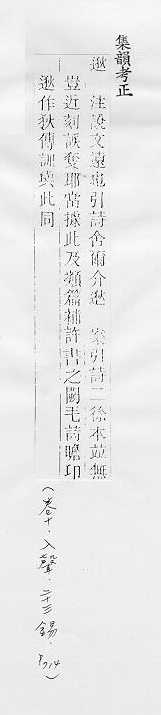 集韻考正
逖　注說文遠也引詩舍爾介逖　案引詩二徐本竝無
豈近刻誤奪耶當據此及類篇補許書之闕毛詩瞻卬
逖作狄傳訓與此同
（卷十．入聲．二十三錫．